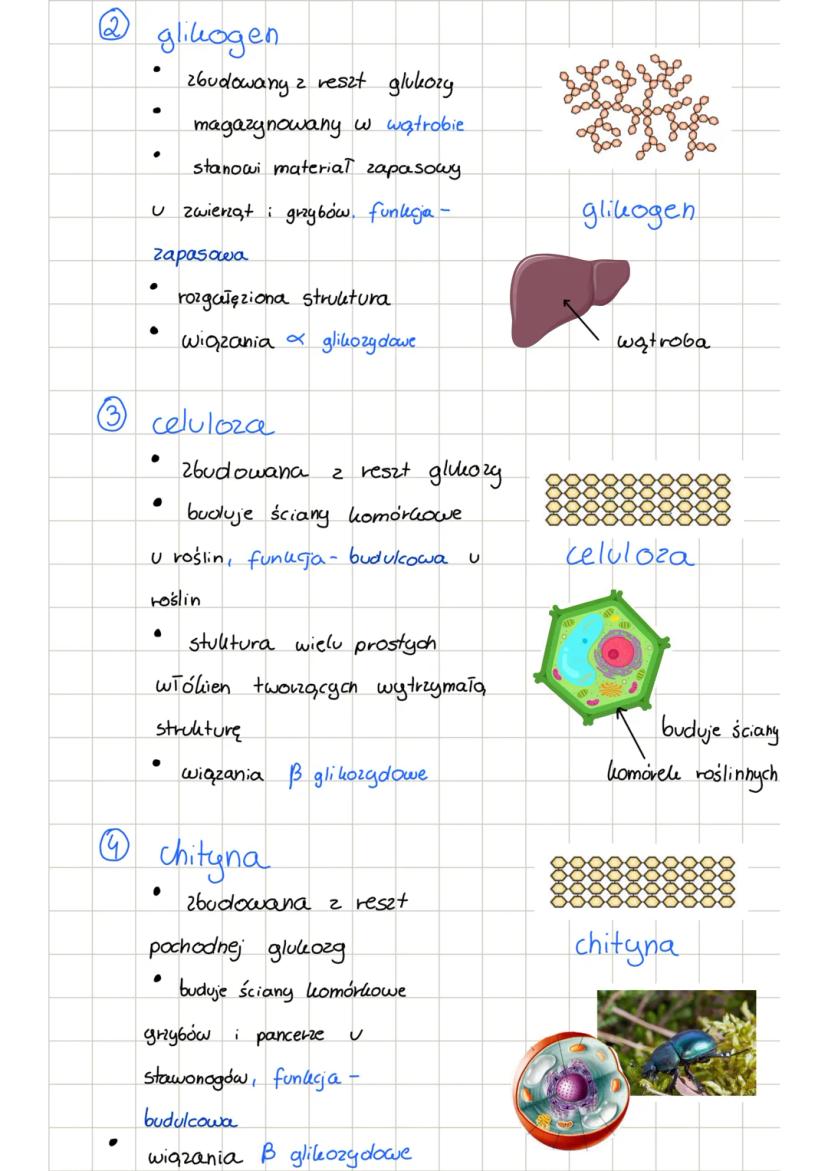 ② glikogen
• zbudowany z reszt glukozy
• magazynowany w wątrobie
• stanowi materiał zapasowy
u zwierząt i grzybów, funkcja -
zapasowa
• rozgałęziona struktura
• wiązania α glikozydowe
glikogen
wątroba
③ celuloza
• zbudowana z reszt glukozy
• buduje ściany komórkowe
u roślin, funkcja - budulcowa u
roślin
• stuktura wielu prostych
włókien tworzących wytrzymałą
strukturę
• wiązania β glikozydowe
celuloza
buduje ściany
komórek roślinnych
④ chityna
• zbudowana z reszt
pochodnej glukozy
• buduje ściany komórkowe
grzybów i pancerze u
stawonogów, funkcja -
budulcowa
• wiązania β glikozydowe
chityna